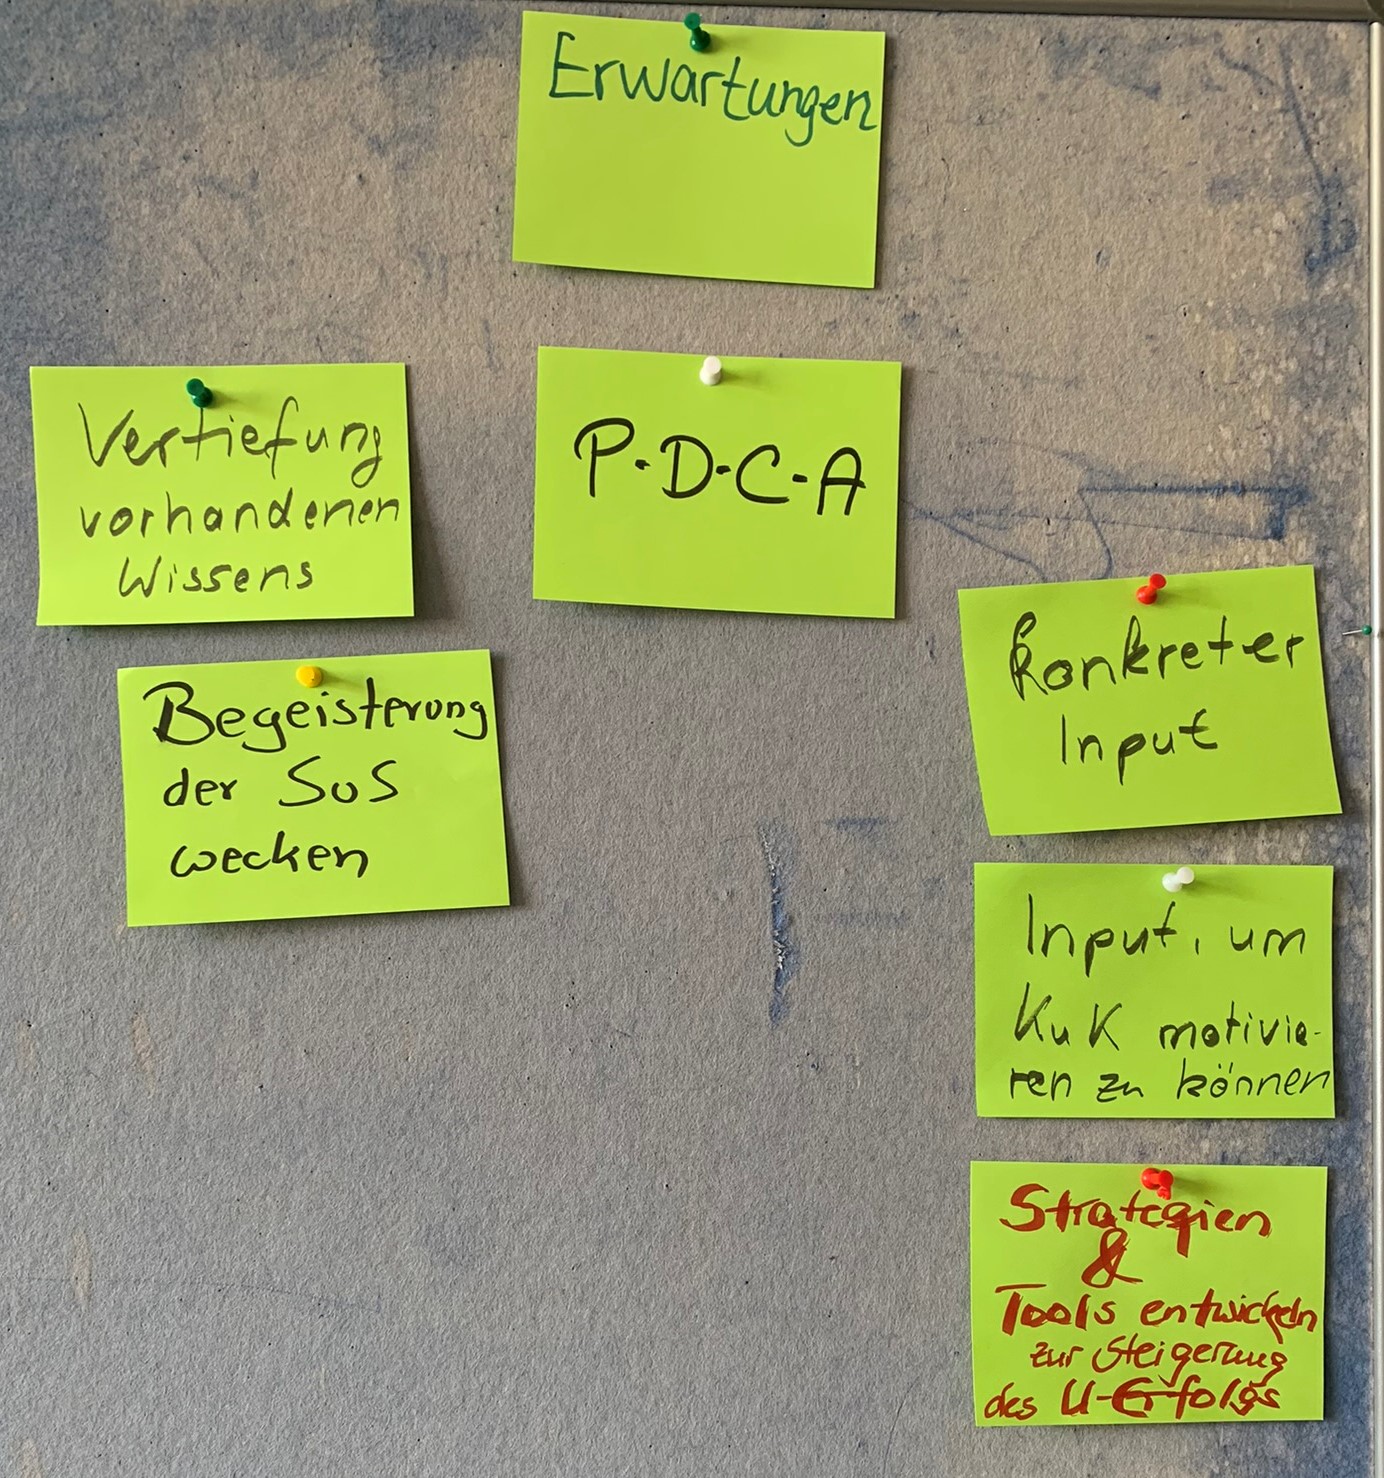 Erwartungen
Vertiefung
vorhandenen
Wissens
P-D-C-A
Begeisterung
der SuS
wecken
Konkreter
Input
Input, um
KuK motivie-
ren zu können
Strategien
&
Tools entwickeln
zur Steigerung
des U-Erfolgs